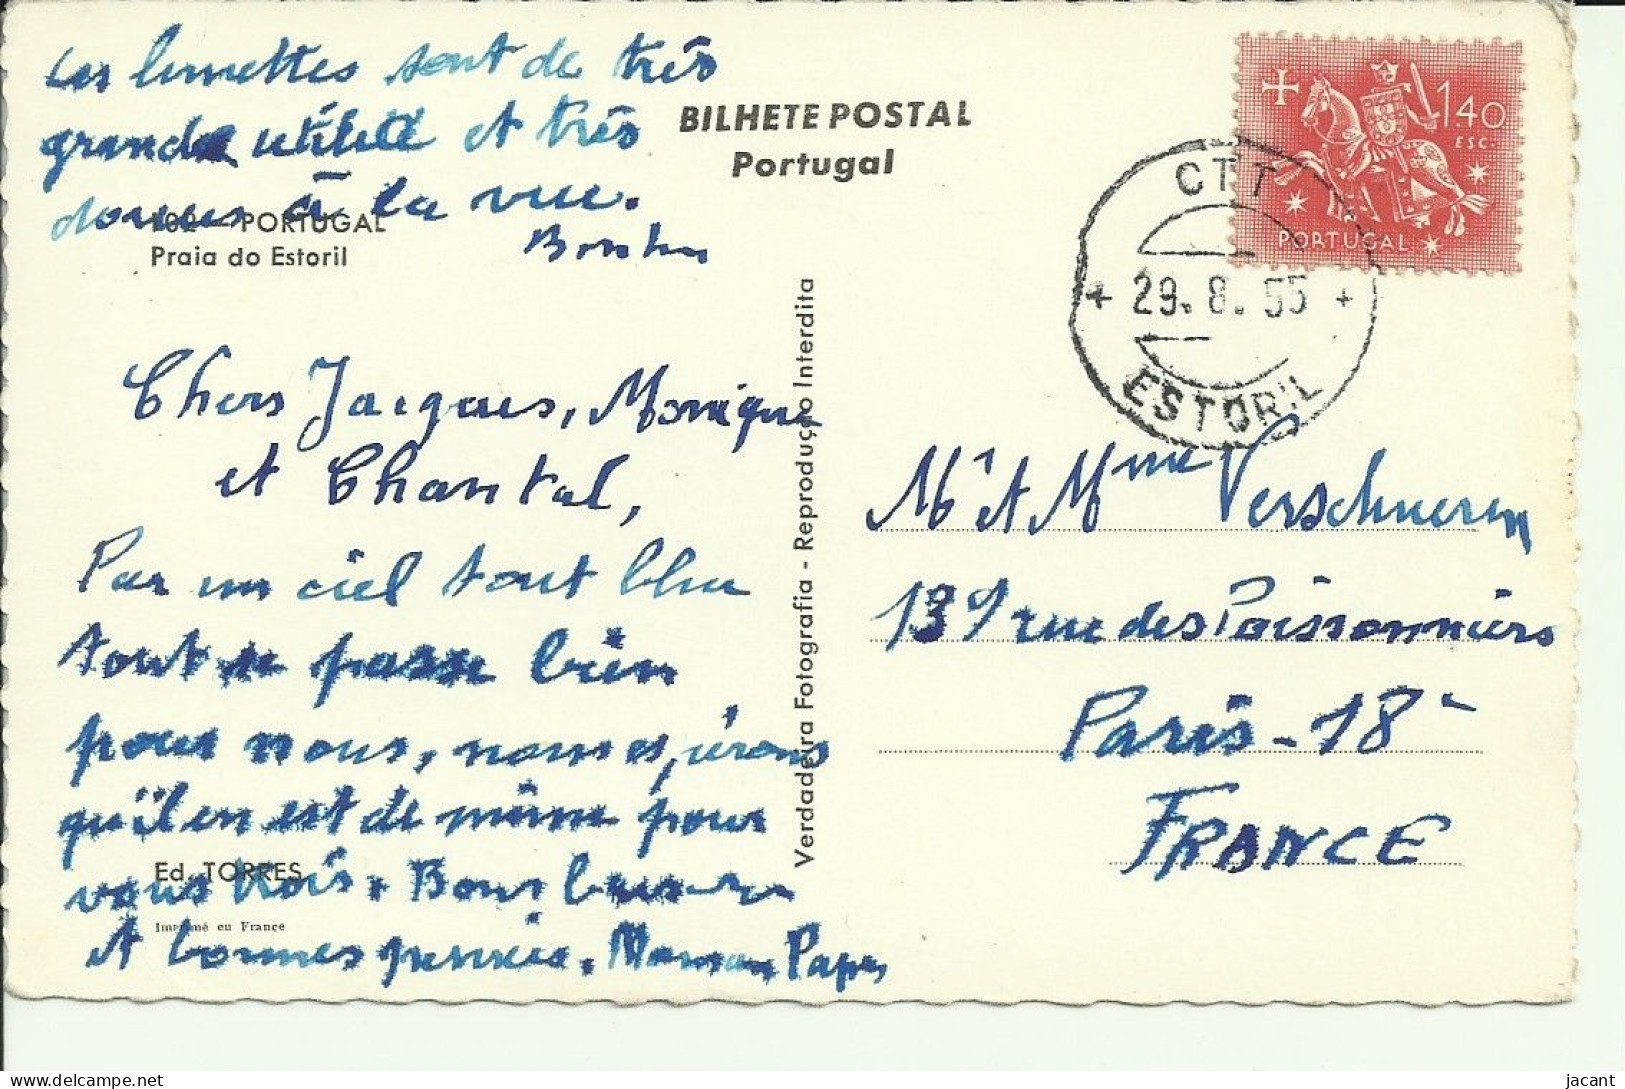 Les lunettes sont de très
grande utilité et très
douces à la vue.
BILHETE POSTAL
Portugal
102 - PORTUGAL
Praia do Estoril
Chers Jacques, Monique
et Chantal,
Par un ciel tout bleu
tout se passe bien
pour nous, nous espérons
qu'il en est de même pour
vous trois. Bons baisers
et bonnes pensées. Maman Papa
Ed. TORRES
Imprimé en France
Verdadeira Fotografia - Reprodução Interdita
140
ESC.
PORTUGAL
CTT
29. 8. 55
ESTORIL
Mr et Mme Verschueren
139 rue des Poissonniers
Paris - 18e
FRANCE
jacant